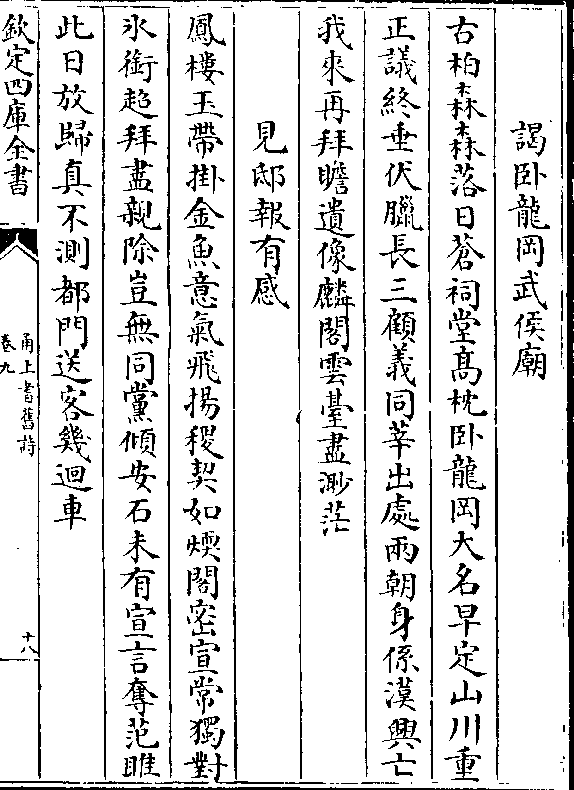 謁卧龍岡武侯廟
古柏森森落日蒼祠堂髙枕卧龍岡大名早定山川重
正議終垂伏臘長三顧義同莘出處兩朝身係漢興亡
我來再拜瞻遺像麟閣雲臺盡渺茫
見邸報有感
鳳樓玉帶掛金魚意氣飛揚稷契如煗閣密宣常獨對
氷銜超拜盡親除豈無同黨傾安石未有宣言奪范雎
此日放歸真不測都門送客幾迴車
欽定四庫全書
甬上耆舊詩
卷九
十八